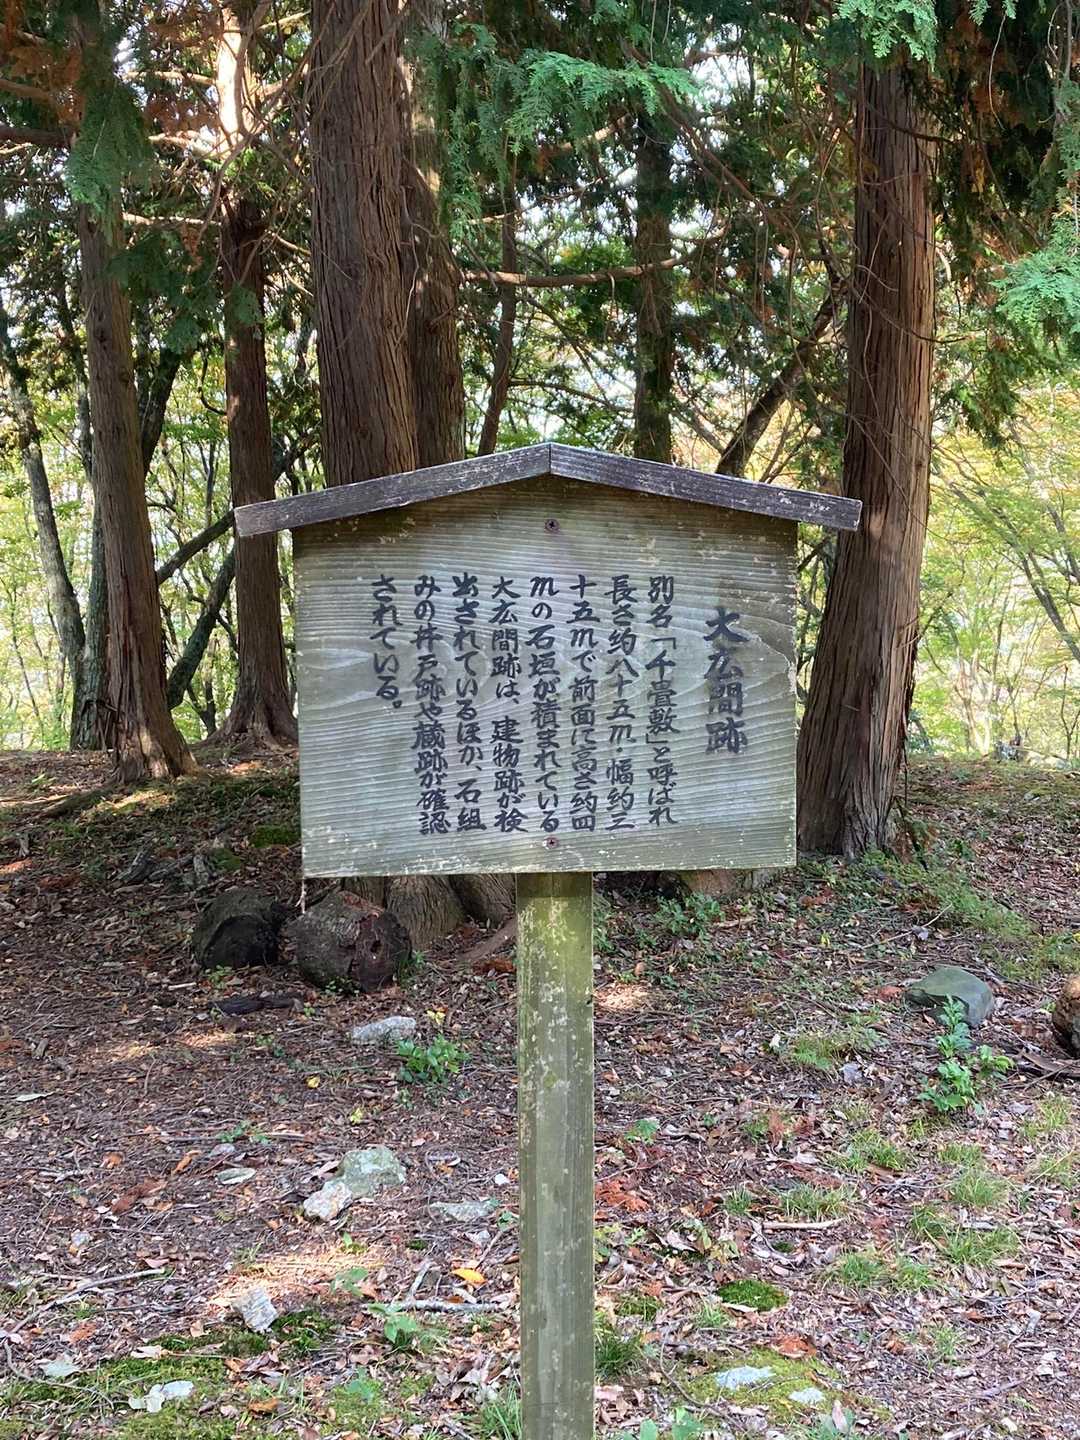 大広間跡
別名「千畳敷」と呼ばれ
長さ約八十五m・幅約三
十五mで前面に高さ約四
mの石垣が積まれている
大広間跡は、建物跡が検
出されているほか、石組
みの井戸跡や蔵跡が確認
されている。